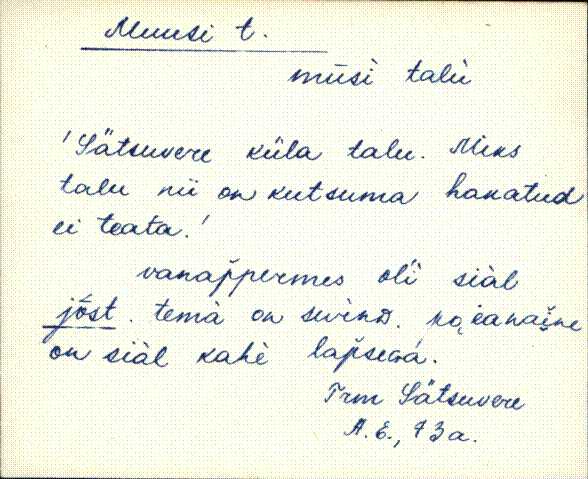 Muusi t.
mūsi talù
'Sätsuvere küla talu. Miks
talu nii on kutsuma hakatud
ei teata.'
vanàp̌permes oĺi siàl
jǒst. temà on suřnD.
on siàl kahè lap̌segà.
Trm Sätsuvere
A. E., 73 a.